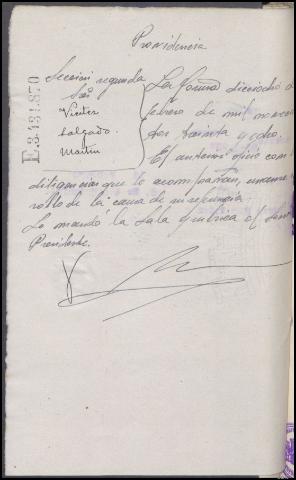 Providencia
Seccion segunda
Sres
Vicitez
Salgado.
Martin
La Coruña dieciocho d
febrero de mil novec
tos treinta y ocho.
El anterior oficio con
diligencias que lo acompañan, unanse
rollo de la causa de su referencia
Lo mandó la Sala y rubrica el Señor
Presidente.
E.3.131.870